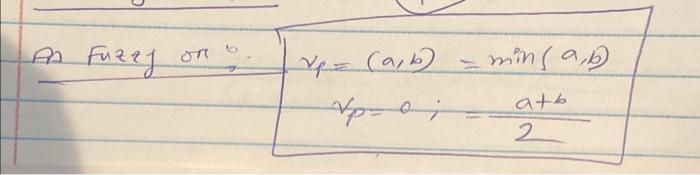 As Fuzzy on :-
Vp = (a,b) = min(a,b)
Vp = 0 ; = a+b / 2